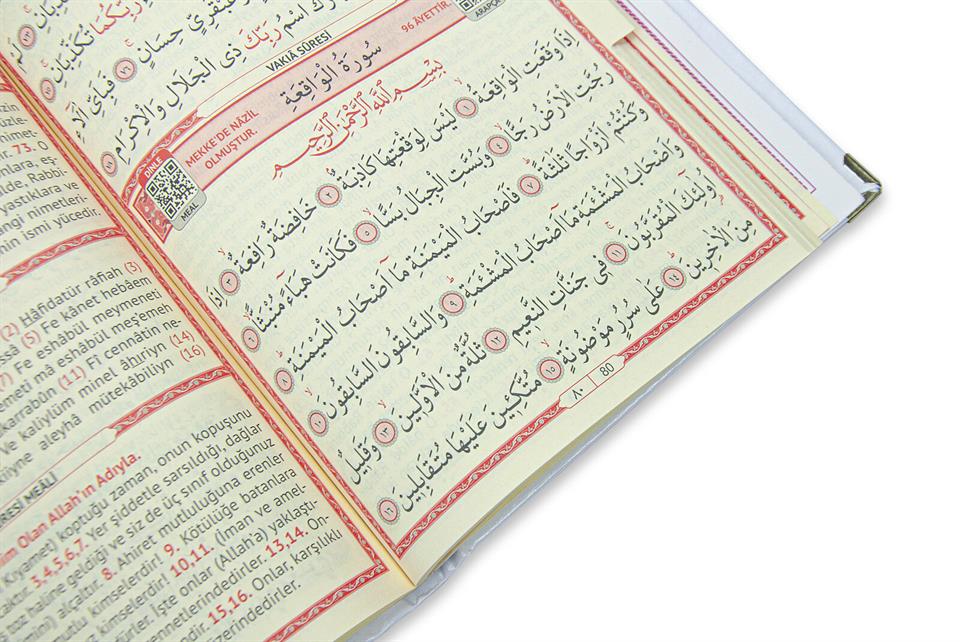 رَبِّكُمَا تُكَذِّبَانِ
وَعَبْقَرِيٍّ حِسَانٍ ﴿٧٦﴾ فَبِاَيِّ اٰلَٓاءِ
اسْمُ رَبِّكَ ذِي الْجَلَالِ وَالْاِكْرَامِ ﴿٧٨﴾
VAKIÂ SÛRESİ
96 ÂYETTİR
سُورَةُ الْوَاقِعَةِ
MEKKE'DE NÂZİL
OLMUŞTUR.
DİNLE
MEAL
بِسْمِ اللّٰهِ الرَّحْمٰنِ الرَّحِيمِ
اِذَا وَقَعَتِ الْوَاقِعَةُ ﴿١﴾ لَيْسَ لِوَقْعَتِهَا كَاذِبَةٌ ﴿٢﴾ خَافِضَةٌ رَافِعَةٌ ﴿٣﴾ اِذَا
رُجَّتِ الْاَرْضُ رَجًّا ﴿٤﴾ وَبُسَّتِ الْجِبَالُ بَسًّا ﴿٥﴾ فَكَانَتْ هَبَٓاءً مُنْبَثًّا ﴿٦﴾
وَكُنْتُمْ اَزْوَاجًا ثَلٰثَةً ﴿٧﴾ فَاَصْحَابُ الْمَيْمَنَةِ مَٓا اَصْحَابُ الْمَيْمَنَةِ ﴿٨﴾
وَاَصْحَابُ الْمَشْـَٔمَةِ مَٓا اَصْحَابُ الْمَشْـَٔمَةِ ﴿٩﴾ وَالسَّابِقُونَ السَّابِقُونَ ﴿١٠﴾
اُولٰٓئِكَ الْمُقَرَّبُونَ ﴿١١﴾ فِي جَنَّاتِ النَّعِيمِ ﴿١٢﴾ ثُلَّةٌ مِنَ الْاَوَّلِينَ ﴿١٣﴾ وَقَلِيلٌ
مِنَ الْاٰخِرِينَ ﴿١٤﴾ عَلٰى سُرُرٍ مَوْضُونَةٍ ﴿١٥﴾ مُتَّكِـِٔينَ عَلَيْهَا مُتَقَابِلِينَ ﴿١٦﴾
٨٠ 80
73. O
yastıklara ve
angi nimetleri-
nin ismi yücedir.
(2) Hâfidatür râfiah (3)
(5) Fe kânet hebâem
(7) Fe eshâbül meymeneti
meti mâ eshâbül meş'emeh
karrabûn (11) Fî cennâtin ne-
Ve kaliylüm minel âhıriyn (14)
kiiyne aleyhâ mütekâbiliyn (16)
Olan Allah'ın Adıyla.
Kıyamet) koptuğu zaman, onun kopuşunu
3,4,5,6,7. Yer şiddetle sarsıldığı, dağlar
toz haline geldiği ve siz de üç sınıf olduğunuz
alçaltır. 8. Ahiret mutluluğuna erenler
mutlu kimselerdir! 9. Kötülüğe batanlara
kimselerdir! 10,11. (İman ve amel-
İşte onlar (Allah'a) yaklaştı-
cennetlerindedirler. 13,14. On-
15,16. Onlar, karşılıklı
üzerindedirler.